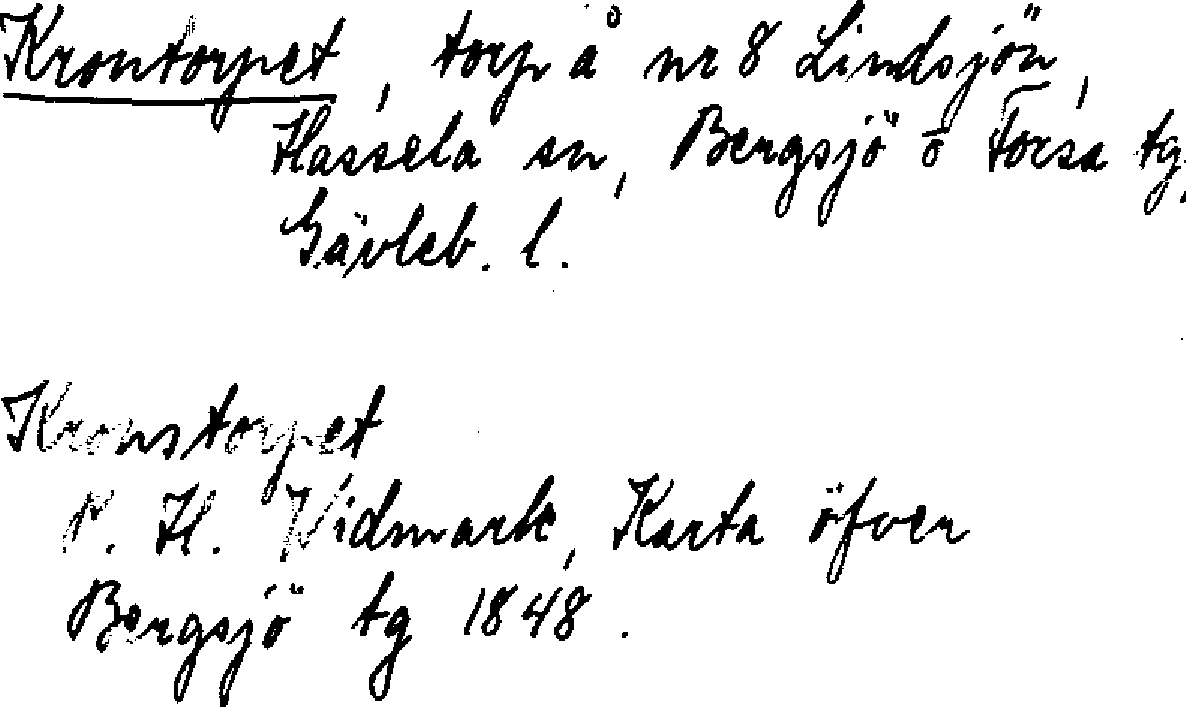 Krontorpet, torp å nr 8 Lindsjön,
Hassela sn, Bergsjö o Forsa tg,
Gävleb. l.
Kronstorpet
P. H. Widmark, Karta öfver
Bergsjö tg 1848.